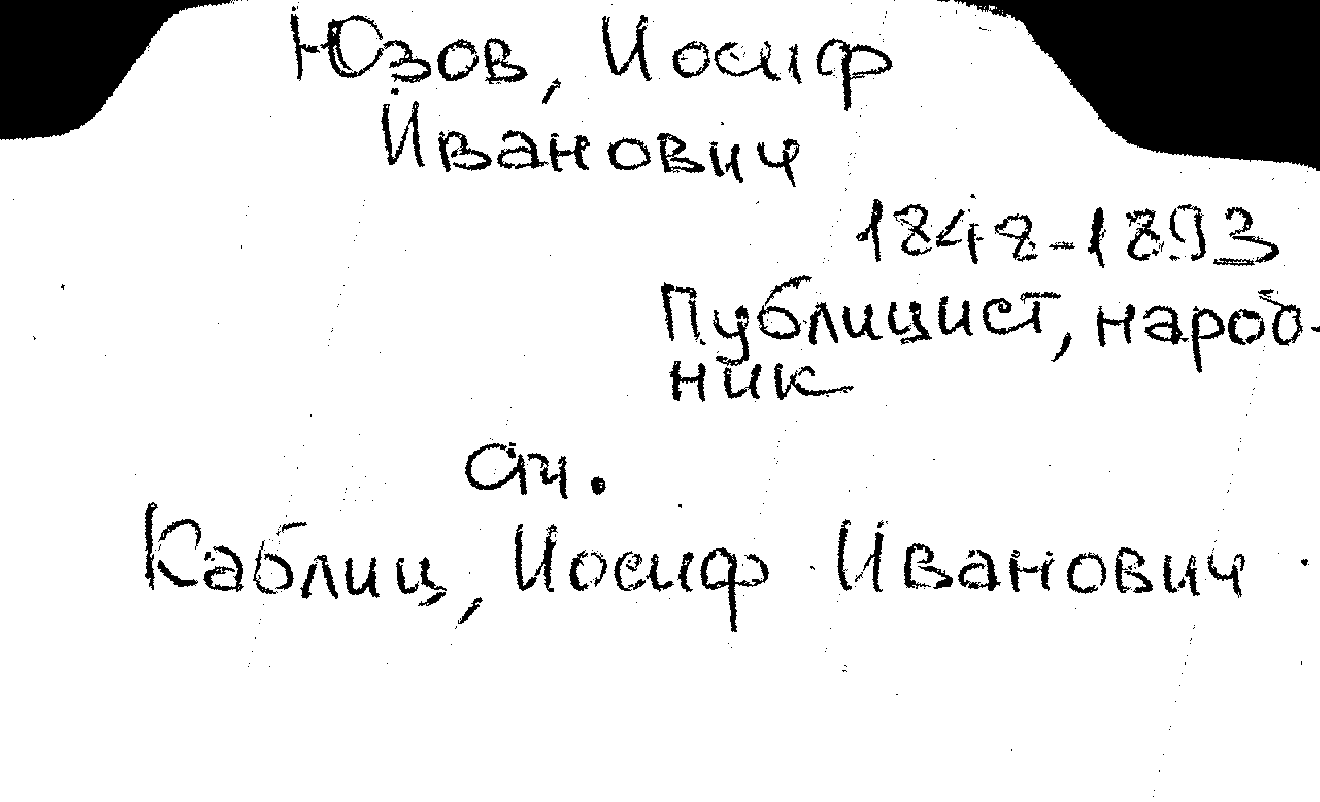 Юзов, Иосиф
Иванович
1848-1893
Публицист, народ-
ник
см.
Каблиц, Иосиф Иванович